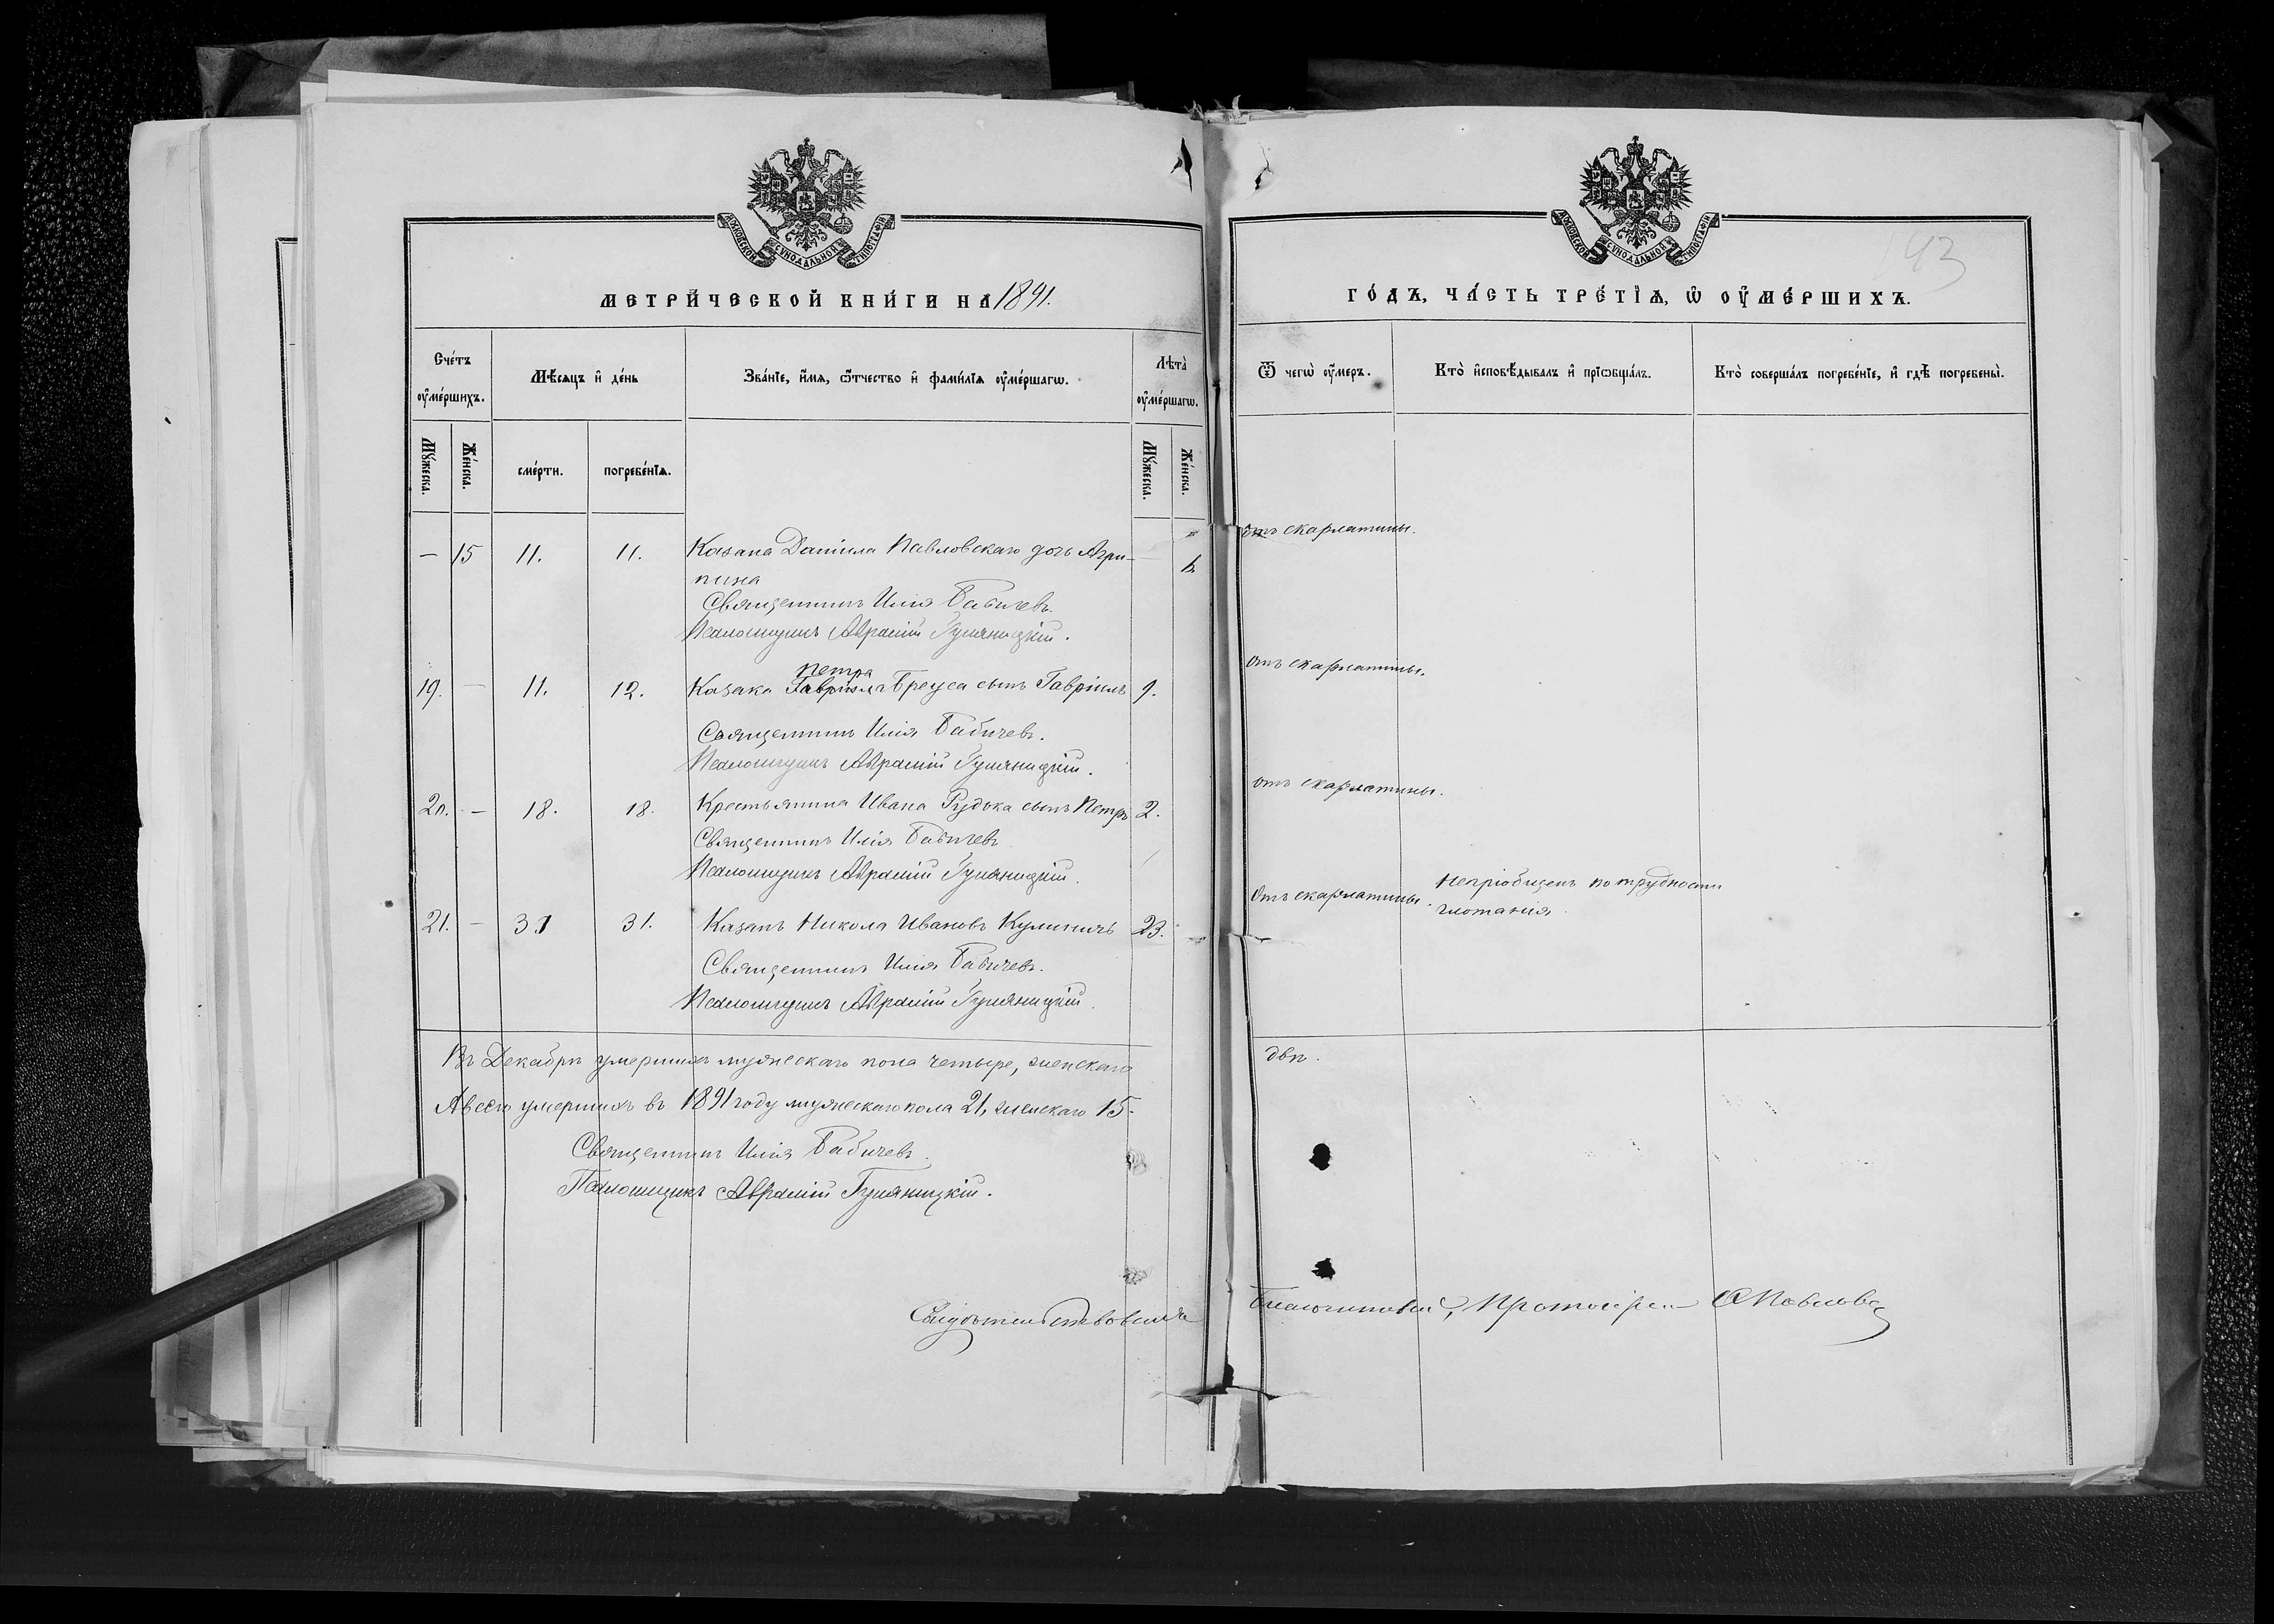 МОСКОВСКОЙ СѴНОДАЛЬНОЙ ТИПОГРАФІИ
МЕТРИ́ЧЕСКОЙ КНИ́ГИ НА 1891.
Сче́тъ ᲂу҆ме́ршихъ.
Мѣ́сяцъ и҆ де́нь
Зва́нїе, и҆́мѧ, ѻ҆́тчество и҆ фами́лїѧ ᲂу҆ме́ршагѡ.
Лѣта̀ ᲂу҆ме́ршагѡ.
Мꙋ́жеска.
Же́нска.
сме́рти.
погребе́нїѧ.
Мꙋ́жеска.
Же́нска.
— 15 11. 11. Козака Даніила Павловскаго дочь Агри-
пина
Священникъ Илія Бабичевъ.
Псаломщикъ Аврамій Гуляницкій.
Петра
19. — 11. 12. Козака Гавріила Бреуса сынъ Гавріилъ 9.
Священникъ Илія Бабичевъ.
Псаломщикъ Аврамій Гуляницкій.
20. — 18. 18. Крестьянина Ивана Рудька сынъ Петръ 2.
Священникъ Илія Бабичевъ
Псаломщикъ Аврамій Гуляницкій.
21. — 31 31. Козакъ Никола Ивановъ Кулиничъ 23.
Священникъ Илія Бабичевъ.
Псаломщикъ Аврамій Гуляницкій.
Въ Декабрѣ умершихъ мужескаго пола четыре, женскаго
А всего умершихъ въ 1891 году мужескаго пола 21, женскаго 15-
Священникъ Илія Бабичевъ.
Псаломщикъ Аврамій Гуляницкій.
Свидѣтельствовалъ
МОСКОВСКОЙ СѴНОДАЛЬНОЙ ТИПОГРАФІИ
193
ГО́ДЪ, ЧА́СТЬ ТРЕ́ТЇѦ, Ѡ҆ ОУ҆МЕ́РШИХЪ.
Ѿ чегѡ̀ ᲂу҆́меръ.
Кто̀ и҆сповѣ́дывалъ и҆ прїѡбща́лъ.
Кто̀ соверша́лъ погребе́нїе, и҆ гдѣ̀ погребены̀.
отъ скарлатины.
отъ скарлатины.
отъ скарлатины.
Отъ скарлатины. Непріобщенъ по трудности
глотанія
двѣ.
Благочинный, Протоіерей Павловъ